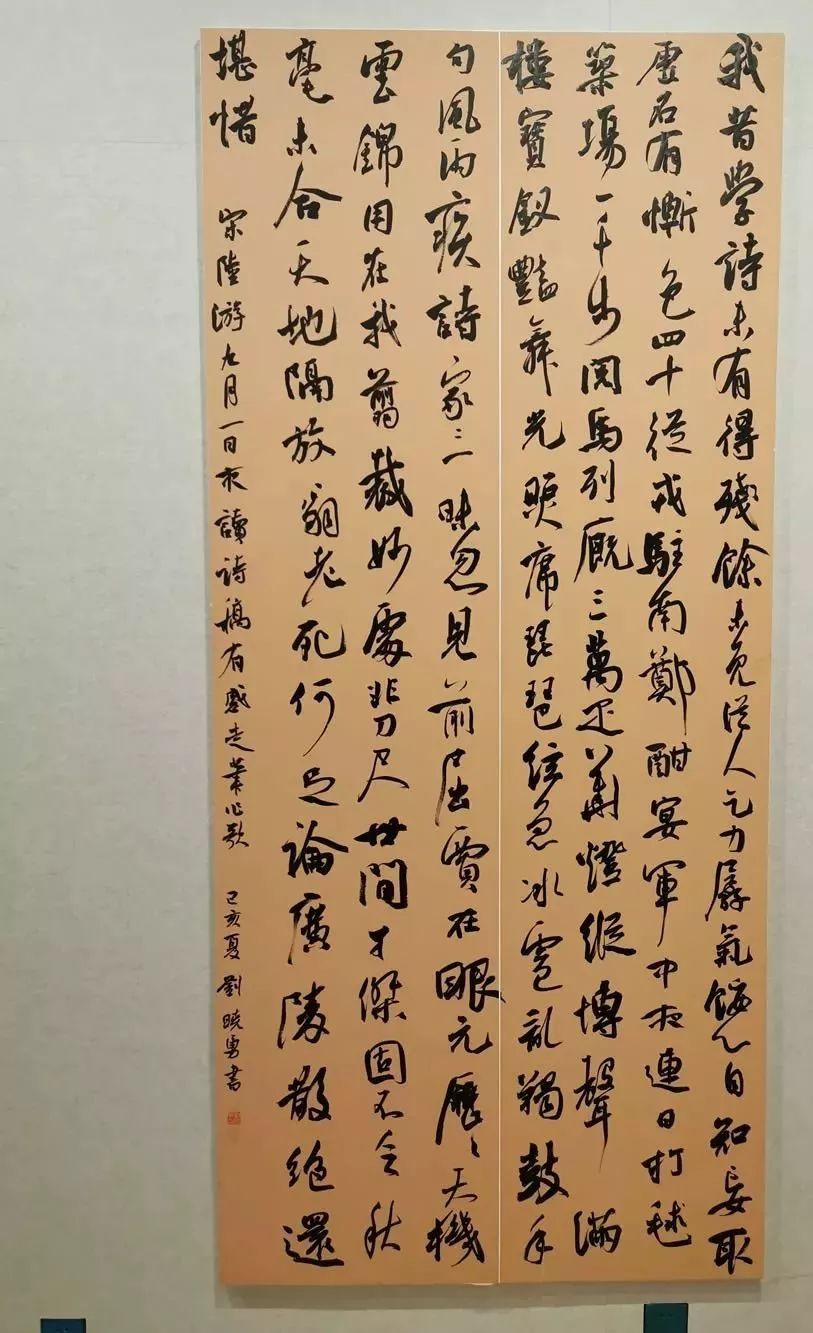 我昔學詩未有得殘餘未免從人乞力孱氣餒心自知妄取
虛名有慚色四十從戎駐南鄭酣宴軍中夜連日打毬
築場一千步閱馬列廄三萬疋華燈縱博聲滿
樓寶釵豔舞光照席琵琶弦急冰雹乱羯鼓手
勻風雨疾詩家三昧忽見前屈賈在眼元歷々天機
雲錦用在我翦裁妙處非刀尺世間才傑固不乏秋
毫未合天地隔放翁老死何足論廣陵散絕還
堪惜 宋陸游九月一日夜讀詩稿有感走筆作歌 己亥夏劉曉勇書